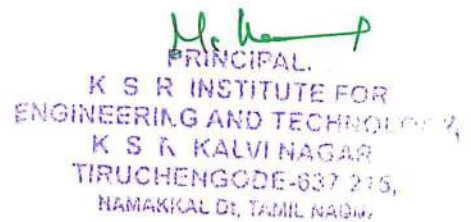 PRINCIPAL,
K S R INSTITUTE FOR
ENGINEERING AND TECHNOLOGY,
K S R KALVI NAGAR
TIRUCHENGODE-637 215,
NAMAKKAL Dt, TAMIL NADU.